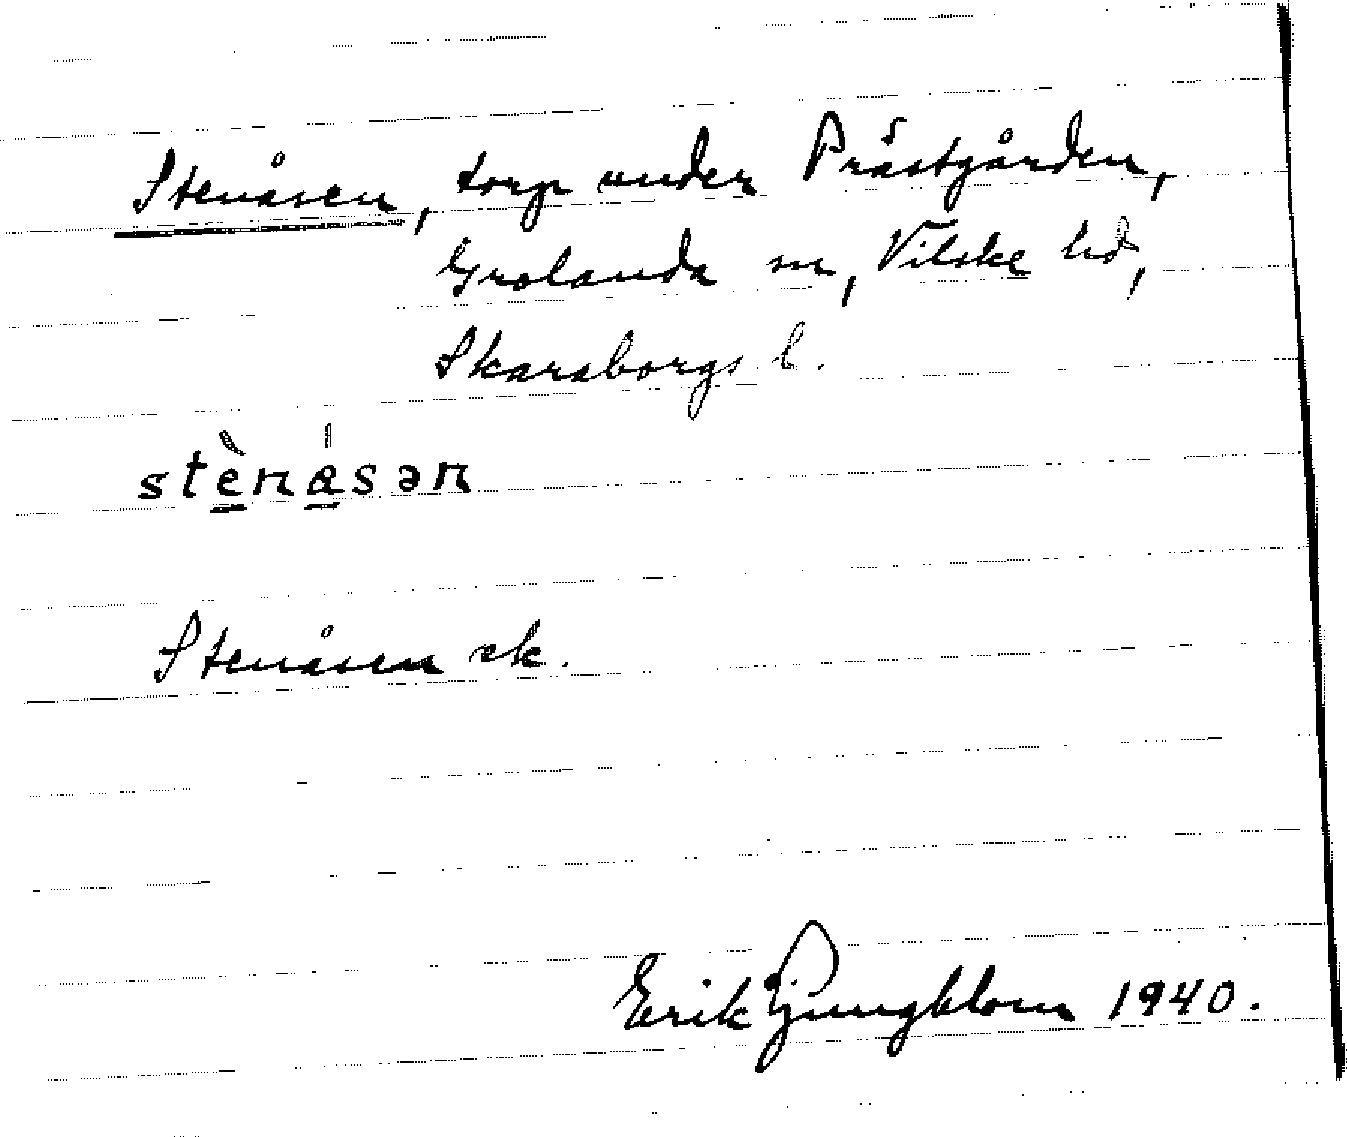 Stenåsen, torp under Prästgården,
Grolanda sn, Vilske hd,
Skaraborgs l.
stènásən
Stenåsen ek.
Erik Ljungblom 1940.